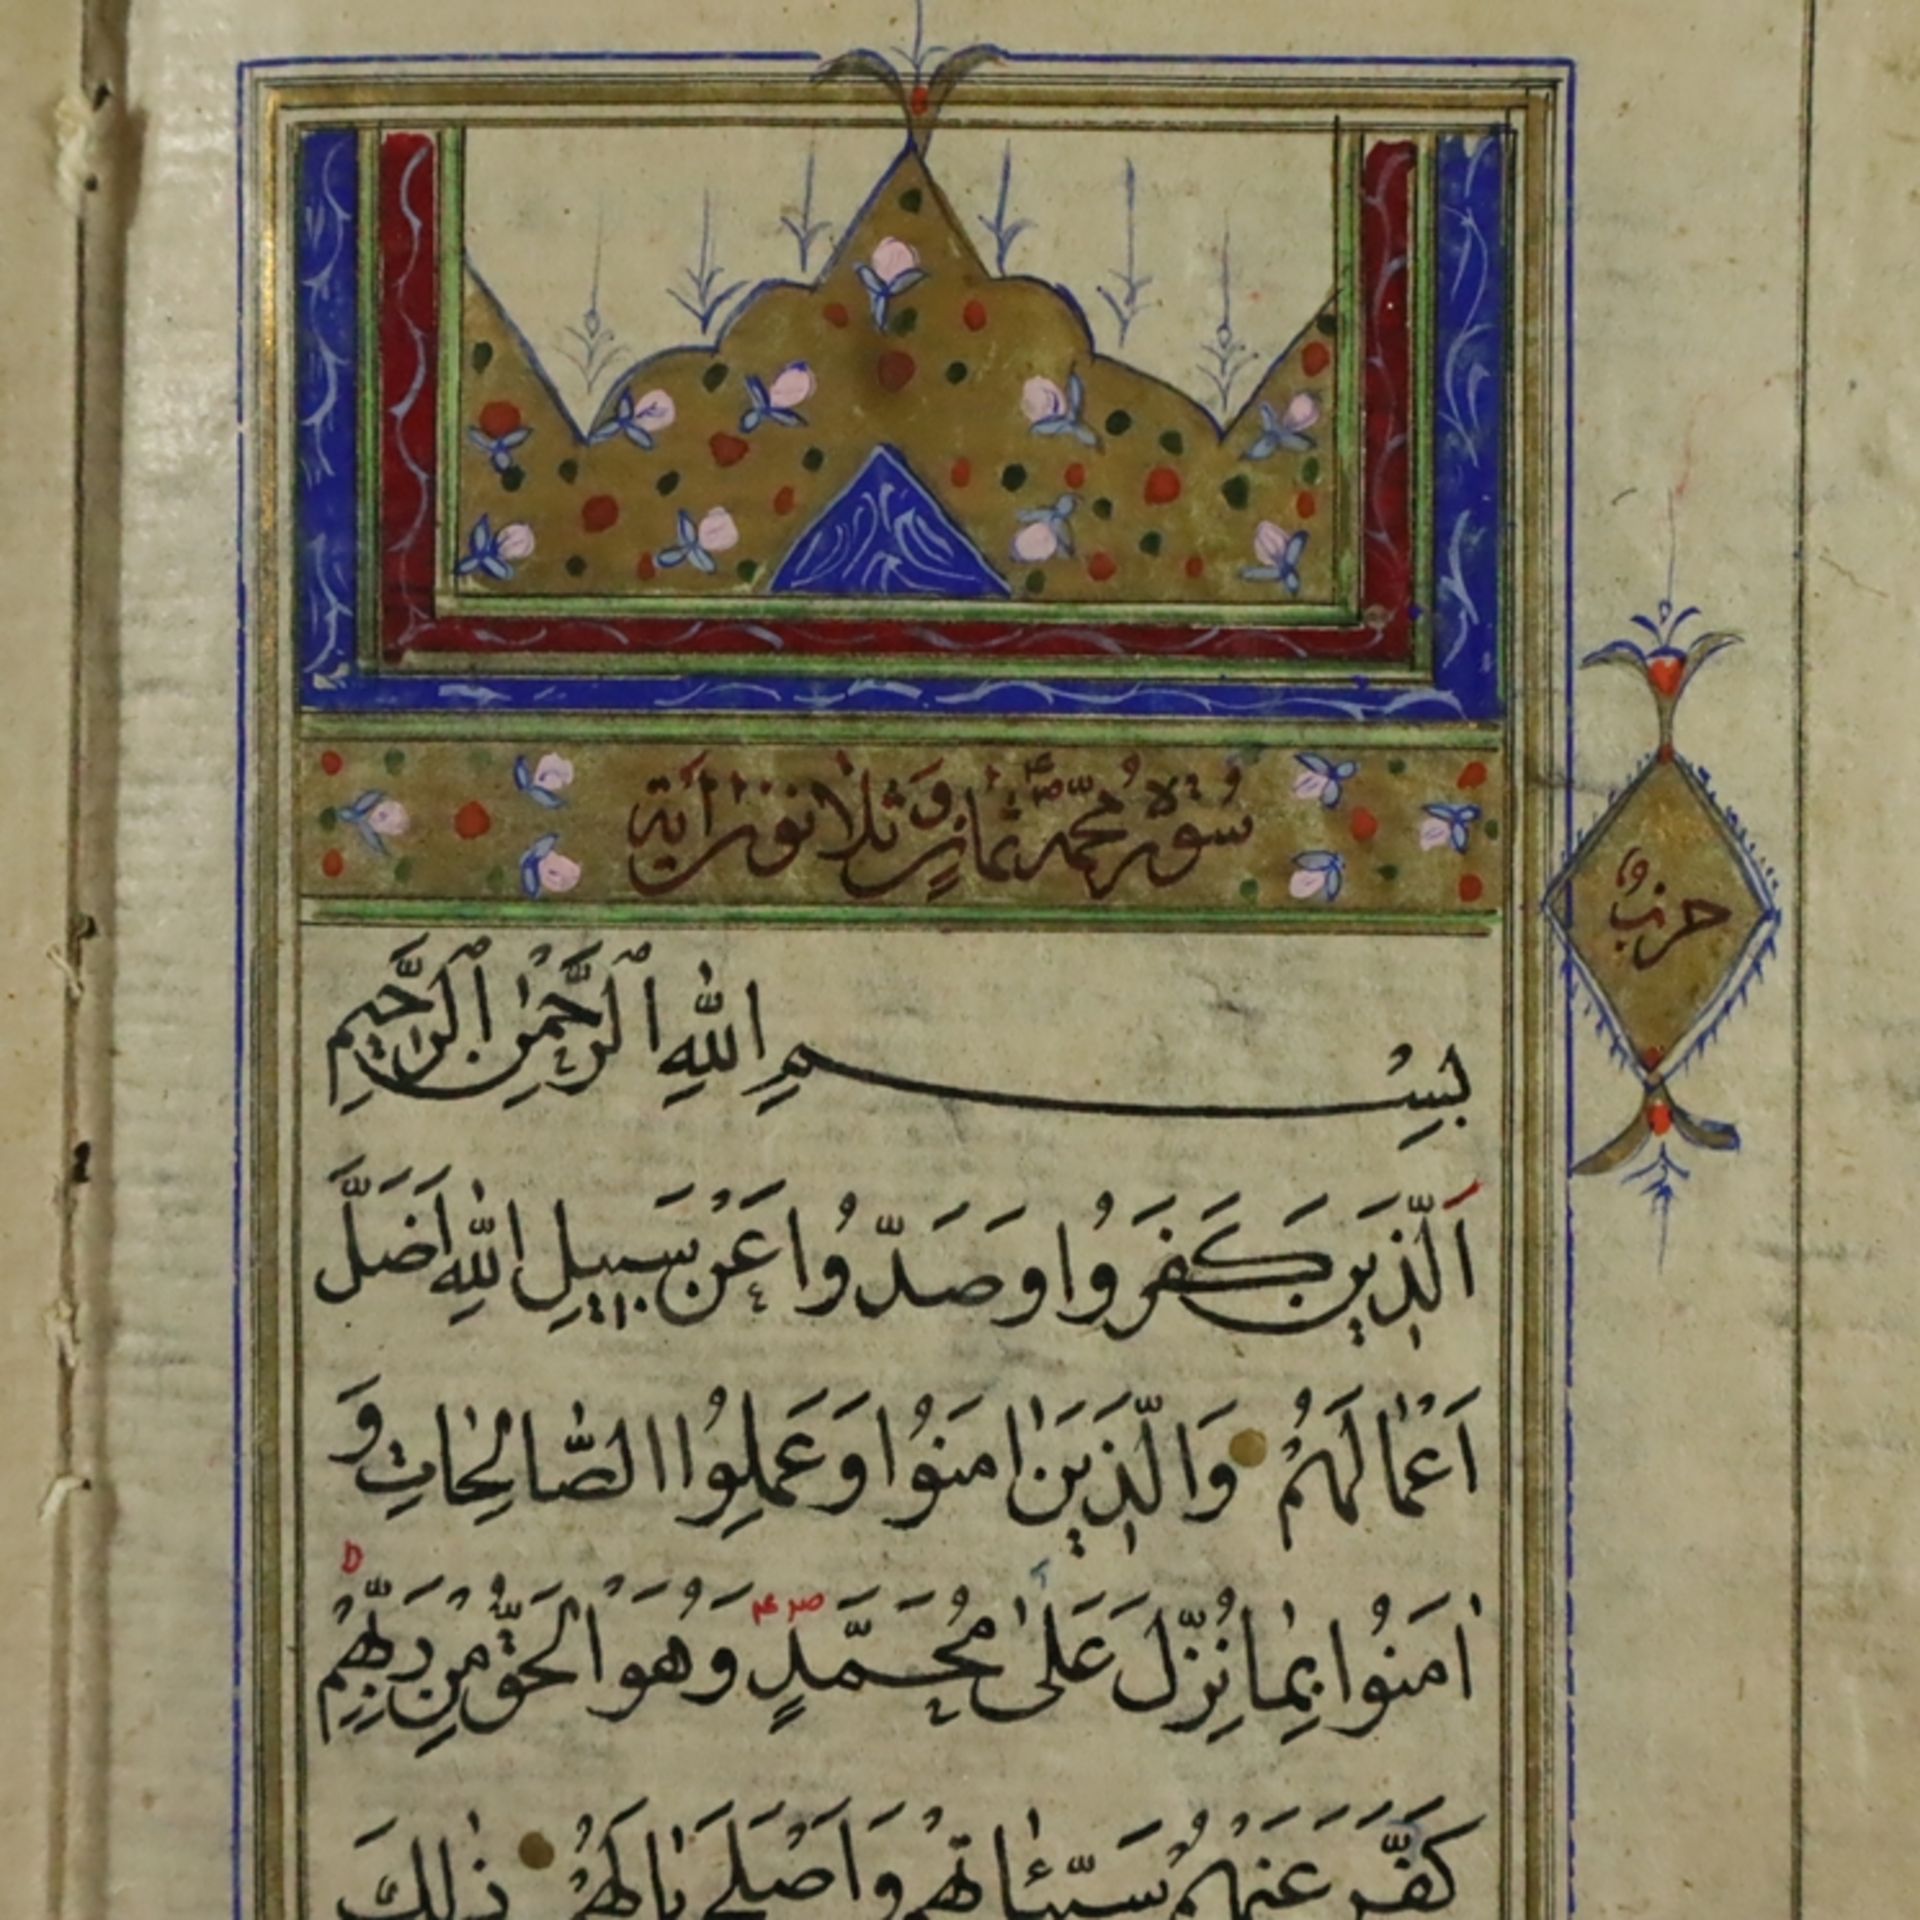 سورة محمد صلعم ثمان و ثلاثون اية
حزب
بِسْمِ اللّٰهِ الرَّحْمٰنِ الرَّحِيمِ
اَلَّذِينَ كَفَرُوا وَصَدُّوا عَنْ سَبِيلِ اللّٰهِ اَضَلَّ
اَعْمَالَهُمْ وَالَّذِينَ اٰمَنُوا وَعَمِلُوا الصَّالِحَاتِ وَ
اٰمَنُوا بِمَا نُزِّلَ عَلٰى مُحَمَّدٍ وَهُوَ الْحَقُّ مِنْ رَبِّهِمْ
كَفَّرَ عَنْهُمْ سَيِّئَاتِهِمْ وَاَصْلَحَ بَالَهُمْ ذٰلِكَ